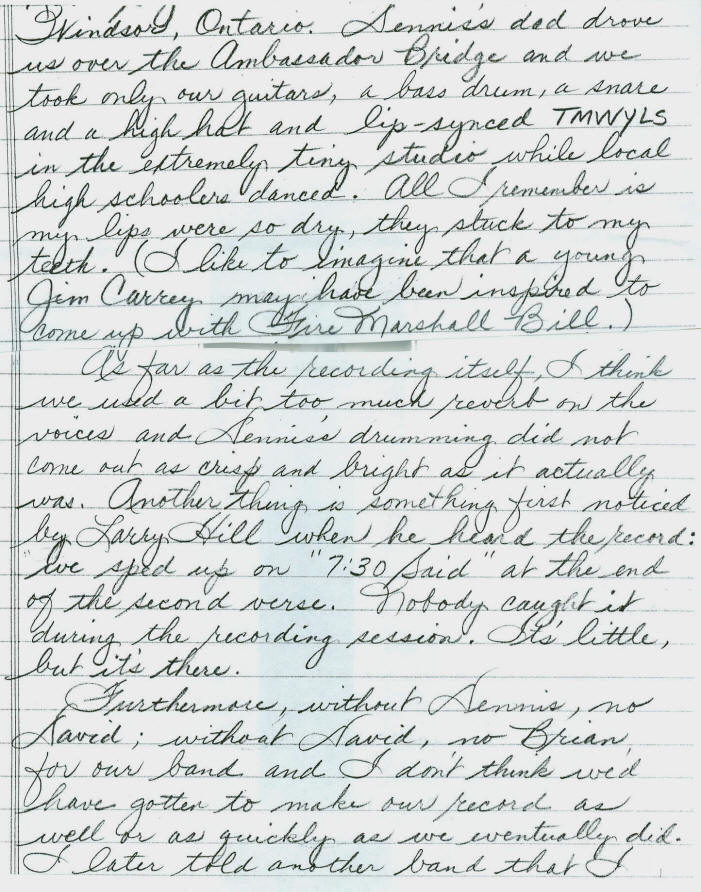 Windsor, Ontario. Dennis's dad drove
us over the Ambassador Bridge and we
took only our guitars, a bass drum, a snare
and a high hat and lip-synced TMWYLS
in the extremely tiny studio while local
high schoolers danced. All I remember is
my lips were so dry, they stuck to my
teeth. (I like to imagine that a young
Jim Carrey may have been inspired to
come up with Fire Marshall Bill.)
As far as the recording itself, I think
we used a bit too much reverb on the
voices and Dennis's drumming did not
come out as crisp and bright as it actually
was. Another thing is something first noticed
by Larry Hill when he heard the record:
"we sped up on "7:30 Said" at the end
of the second verse. Nobody caught it
during the recording session. It's little,
but it's there.
Furthermore, without Dennis, no
David; without David, no Brian
for our band and I don't think we'd
have gotten to make our record as
well or as quickly as we eventually did.
I later told another band that I